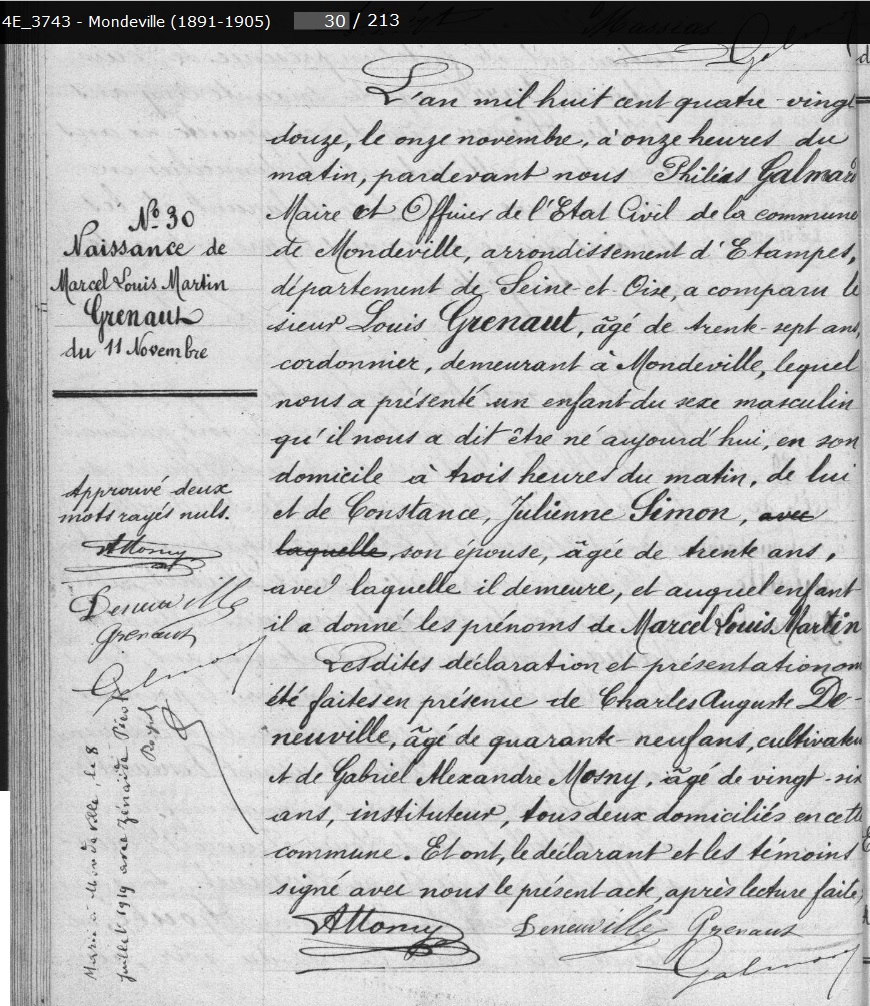 4E_3743 - Mondeville (1891-1905)
30 / 213
L'an mil huit cent quatre-vingt
douze, le onze novembre, à onze heures du
matin, pardevant nous Philéas Galmard
Maire et Officier de l'Etat Civil de la commune
de Mondeville, arrondissement d'Etampes,
département de Seine-et-Oise, a comparu le
sieur Louis Grenaut, âgé de trente-sept ans,
cordonnier, demeurant à Mondeville, lequel
nous a présenté un enfant du sexe masculin
qu'il nous a dit être né aujourd'hui, en son
domicile à trois heures du matin, de lui
et de Constance, Julienne Simon, avec
laquelle, son épouse, âgée de trente ans,
avec laquelle il demeure, et auquel enfant
il a donné les prénoms de Marcel Louis Martin
Lesdites déclaration et présentation ont
été faites en présence de Charles Auguste De-
neuville, âgé de quarante-neuf ans, cultivateur
et de Gabriel Alexandre Mosny, âgé de vingt-six
ans, instituteur, tous deux domiciliés en cette
commune. Et ont, le déclarant et les témoins
signé avec nous le présent acte, après lecture faite,
Deneuville Grenaut
Galmard
No. 30
Naissance de
Marcel Louis Martin
Grenaut
du 11 Novembre
Approuvé deux
mots rayés nuls.
Deneuville
Grenaut
Galmard
Marié à Mondeville, le 8
juillet 1919 avec Zénaïde